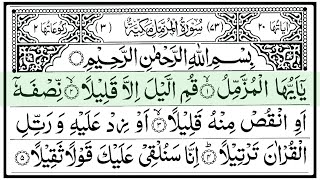 اٰیَاتُهَا ٢٠ (٧٣) سُوْرَةُ الْمُزَّمِّلِ مَكِّيَّةٌ (٣) رُكُوْعَاتُهَا ٢
بِسْمِ اللّٰهِ الرَّحْمٰنِ الرَّحِيْمِ
يٰۤاَيُّهَا الْمُزَّمِّلُ ١ قُمِ الَّيْلَ اِلَّا قَلِيْلًا ٢ نِّصْفَهٗۤ
اَوِ انْقُصْ مِنْهُ قَلِيْلًا ٣ اَوْ زِدْ عَلَيْهِ وَ رَتِّلِ
الْقُرْاٰنَ تَرْتِيْلًا ٤ اِنَّا سَنُلْقِيْ عَلَيْكَ قَوْلًا ثَقِيْلًا ٥